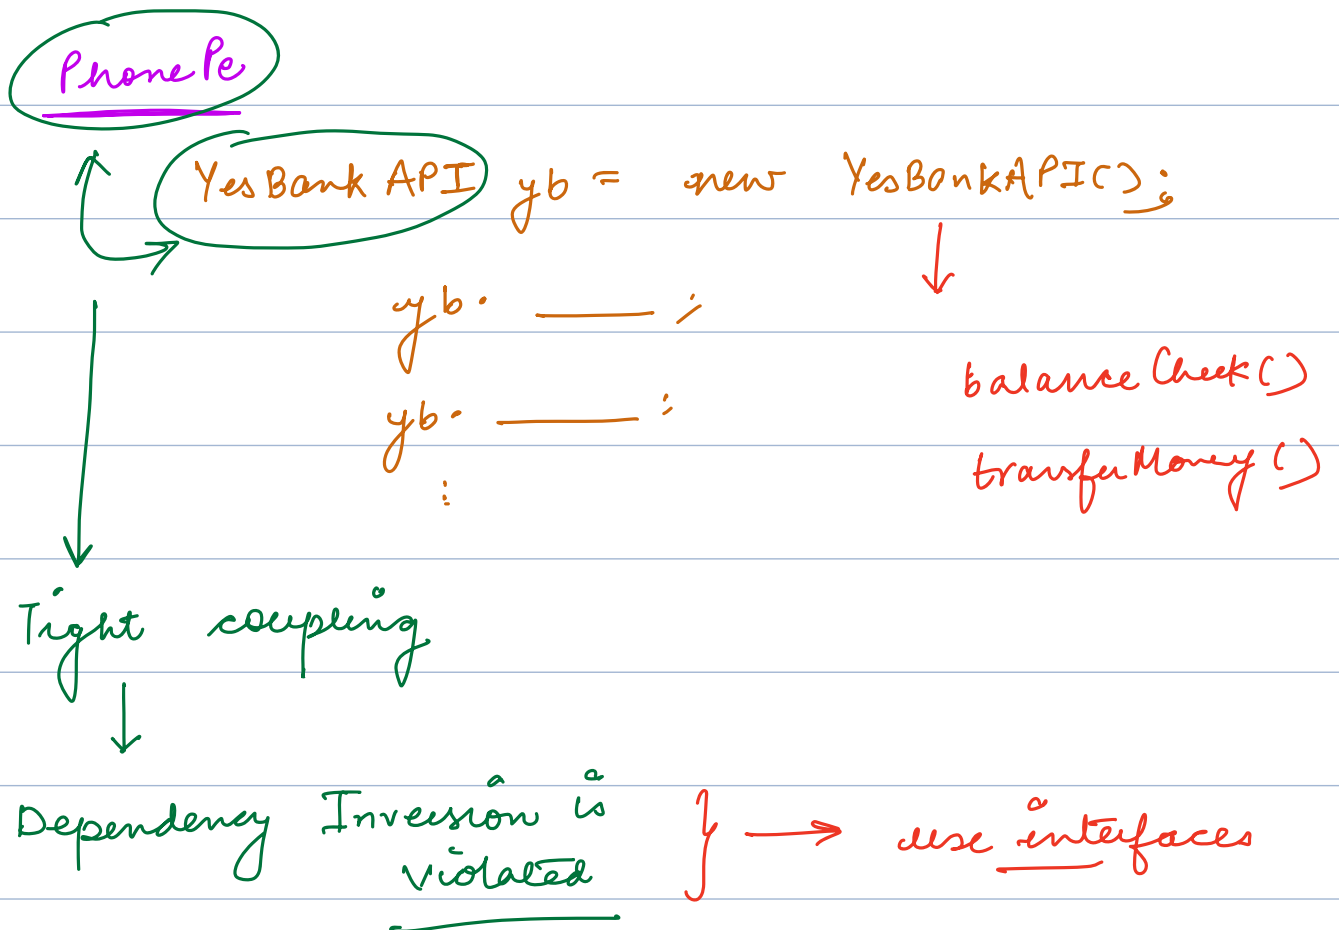 PhonePe
YesBank API yb = new YesBankAPI();
yb. ______ ;
balanceCheck()
yb. ______ ;
transferMoney()
:
Tight coupling
Dependency Inversion is } → use interfaces
violated